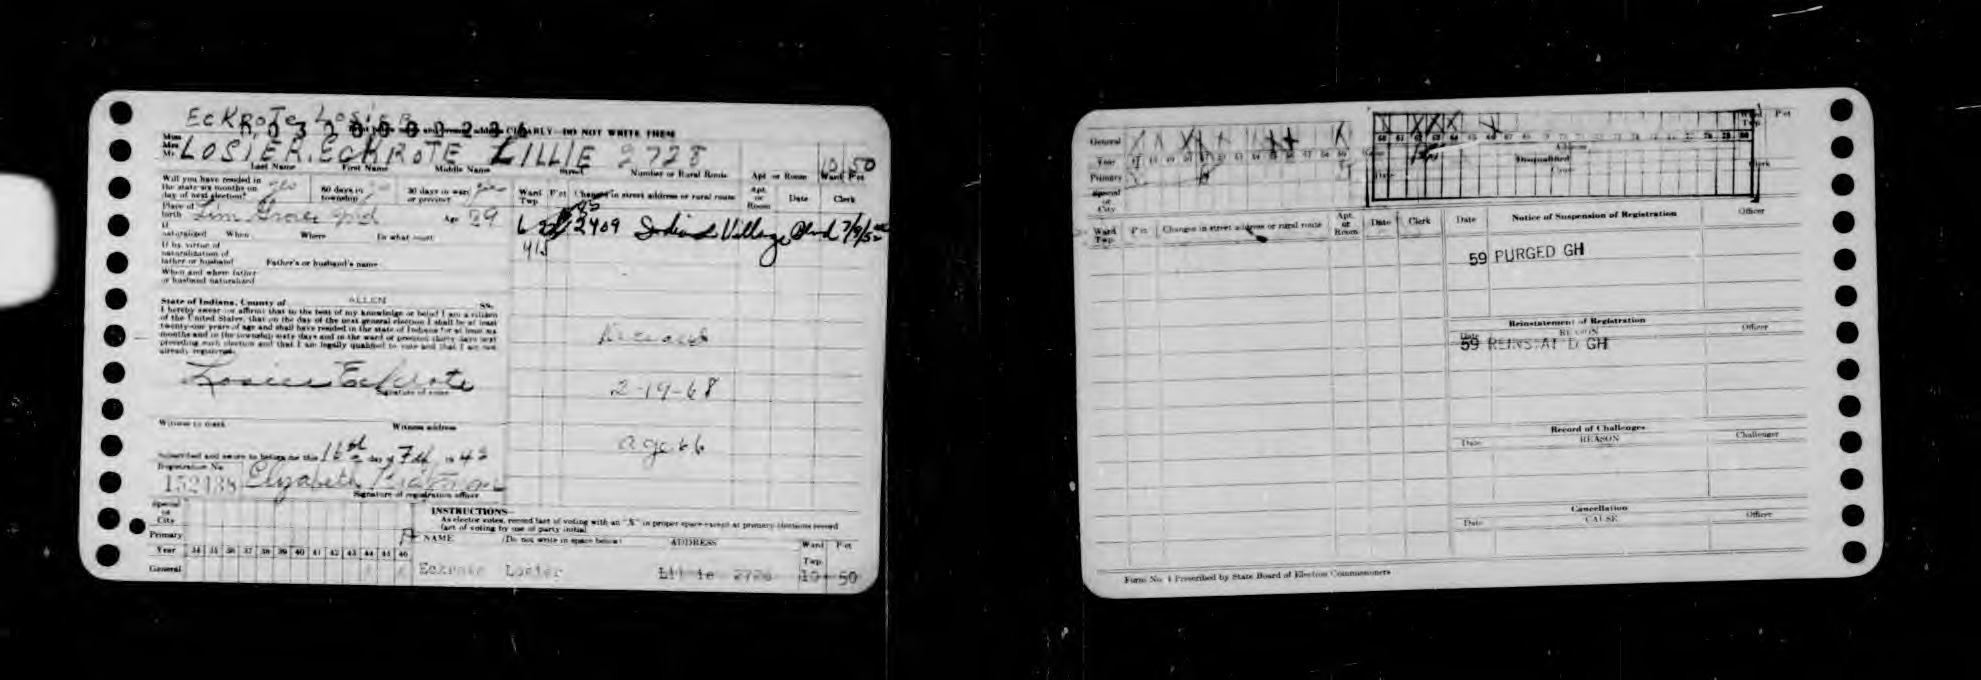 EckRoTe LosiER
Miss
Mrs
Mr. LOSIER, EckROTE LILLIE 2728 10 50
Last Name First Name Middle Name Street Number or Rural Route Apt or Room Ward P'ct
Will you have resided in the state six months on day of next election? yes 60 days in township 30 days in ward or precinct
Place of birth Age 29
If naturalized When Where In what court
If by virtue of naturalization of father or husband Father's or husband's name
When and where father or husband naturalized
Ward Twp P'ct Changes in street address or rural route Apt. or Room Date Clerk
2409 Indian Village Blvd
State of Indiana, County of ALLEN SS.
I hereby swear or affirm that to the best of my knowledge or belief I am a citizen
of the United States, that on the day of the next general election I shall be at least
twenty-one years of age and shall have resided in the state of Indiana for at least six
months and in the township sixty days and in the ward or precinct thirty days next
preceding such election and that I am legally qualified to vote and that I am not
already registered.
Losier Eckrote
Signature of voter
Deceased
2-19-68
age 66
Witness to mark Witness address
Subscribed and sworn to before me this 16th day of Feb 19 42
Registration No.
152438 Elizabeth
Signature of registration officer
INSTRUCTIONS
As elector votes, record fact of voting with an "X" in proper space except at primary elections record
fact of voting by use of party initial
Special or City
Primary
Year 34 35 36 37 38 39 40 41 42 43 44 45 46
General
NAME (Do not write in space below) ADDRESS Ward Twp. P'ct
Eckrote Losier Lillie 2728 10 50
General
Year
Primary
Special or City
Ward Twp. P'ct
Address
Disqualified
Cause
Date
Clerk
Ward Twp. P'ct Changes in street address or rural route Apt. or Room Date Clerk
Date Notice of Suspension of Registration Officer
59 PURGED GH
Reinstatement of Registration
Date REASON Officer
59 REINSTATED GH
Record of Challenges
Date REASON Challenger
Cancellation
Date CAUSE Officer
Form No. 4 Prescribed by State Board of Election Commissioners